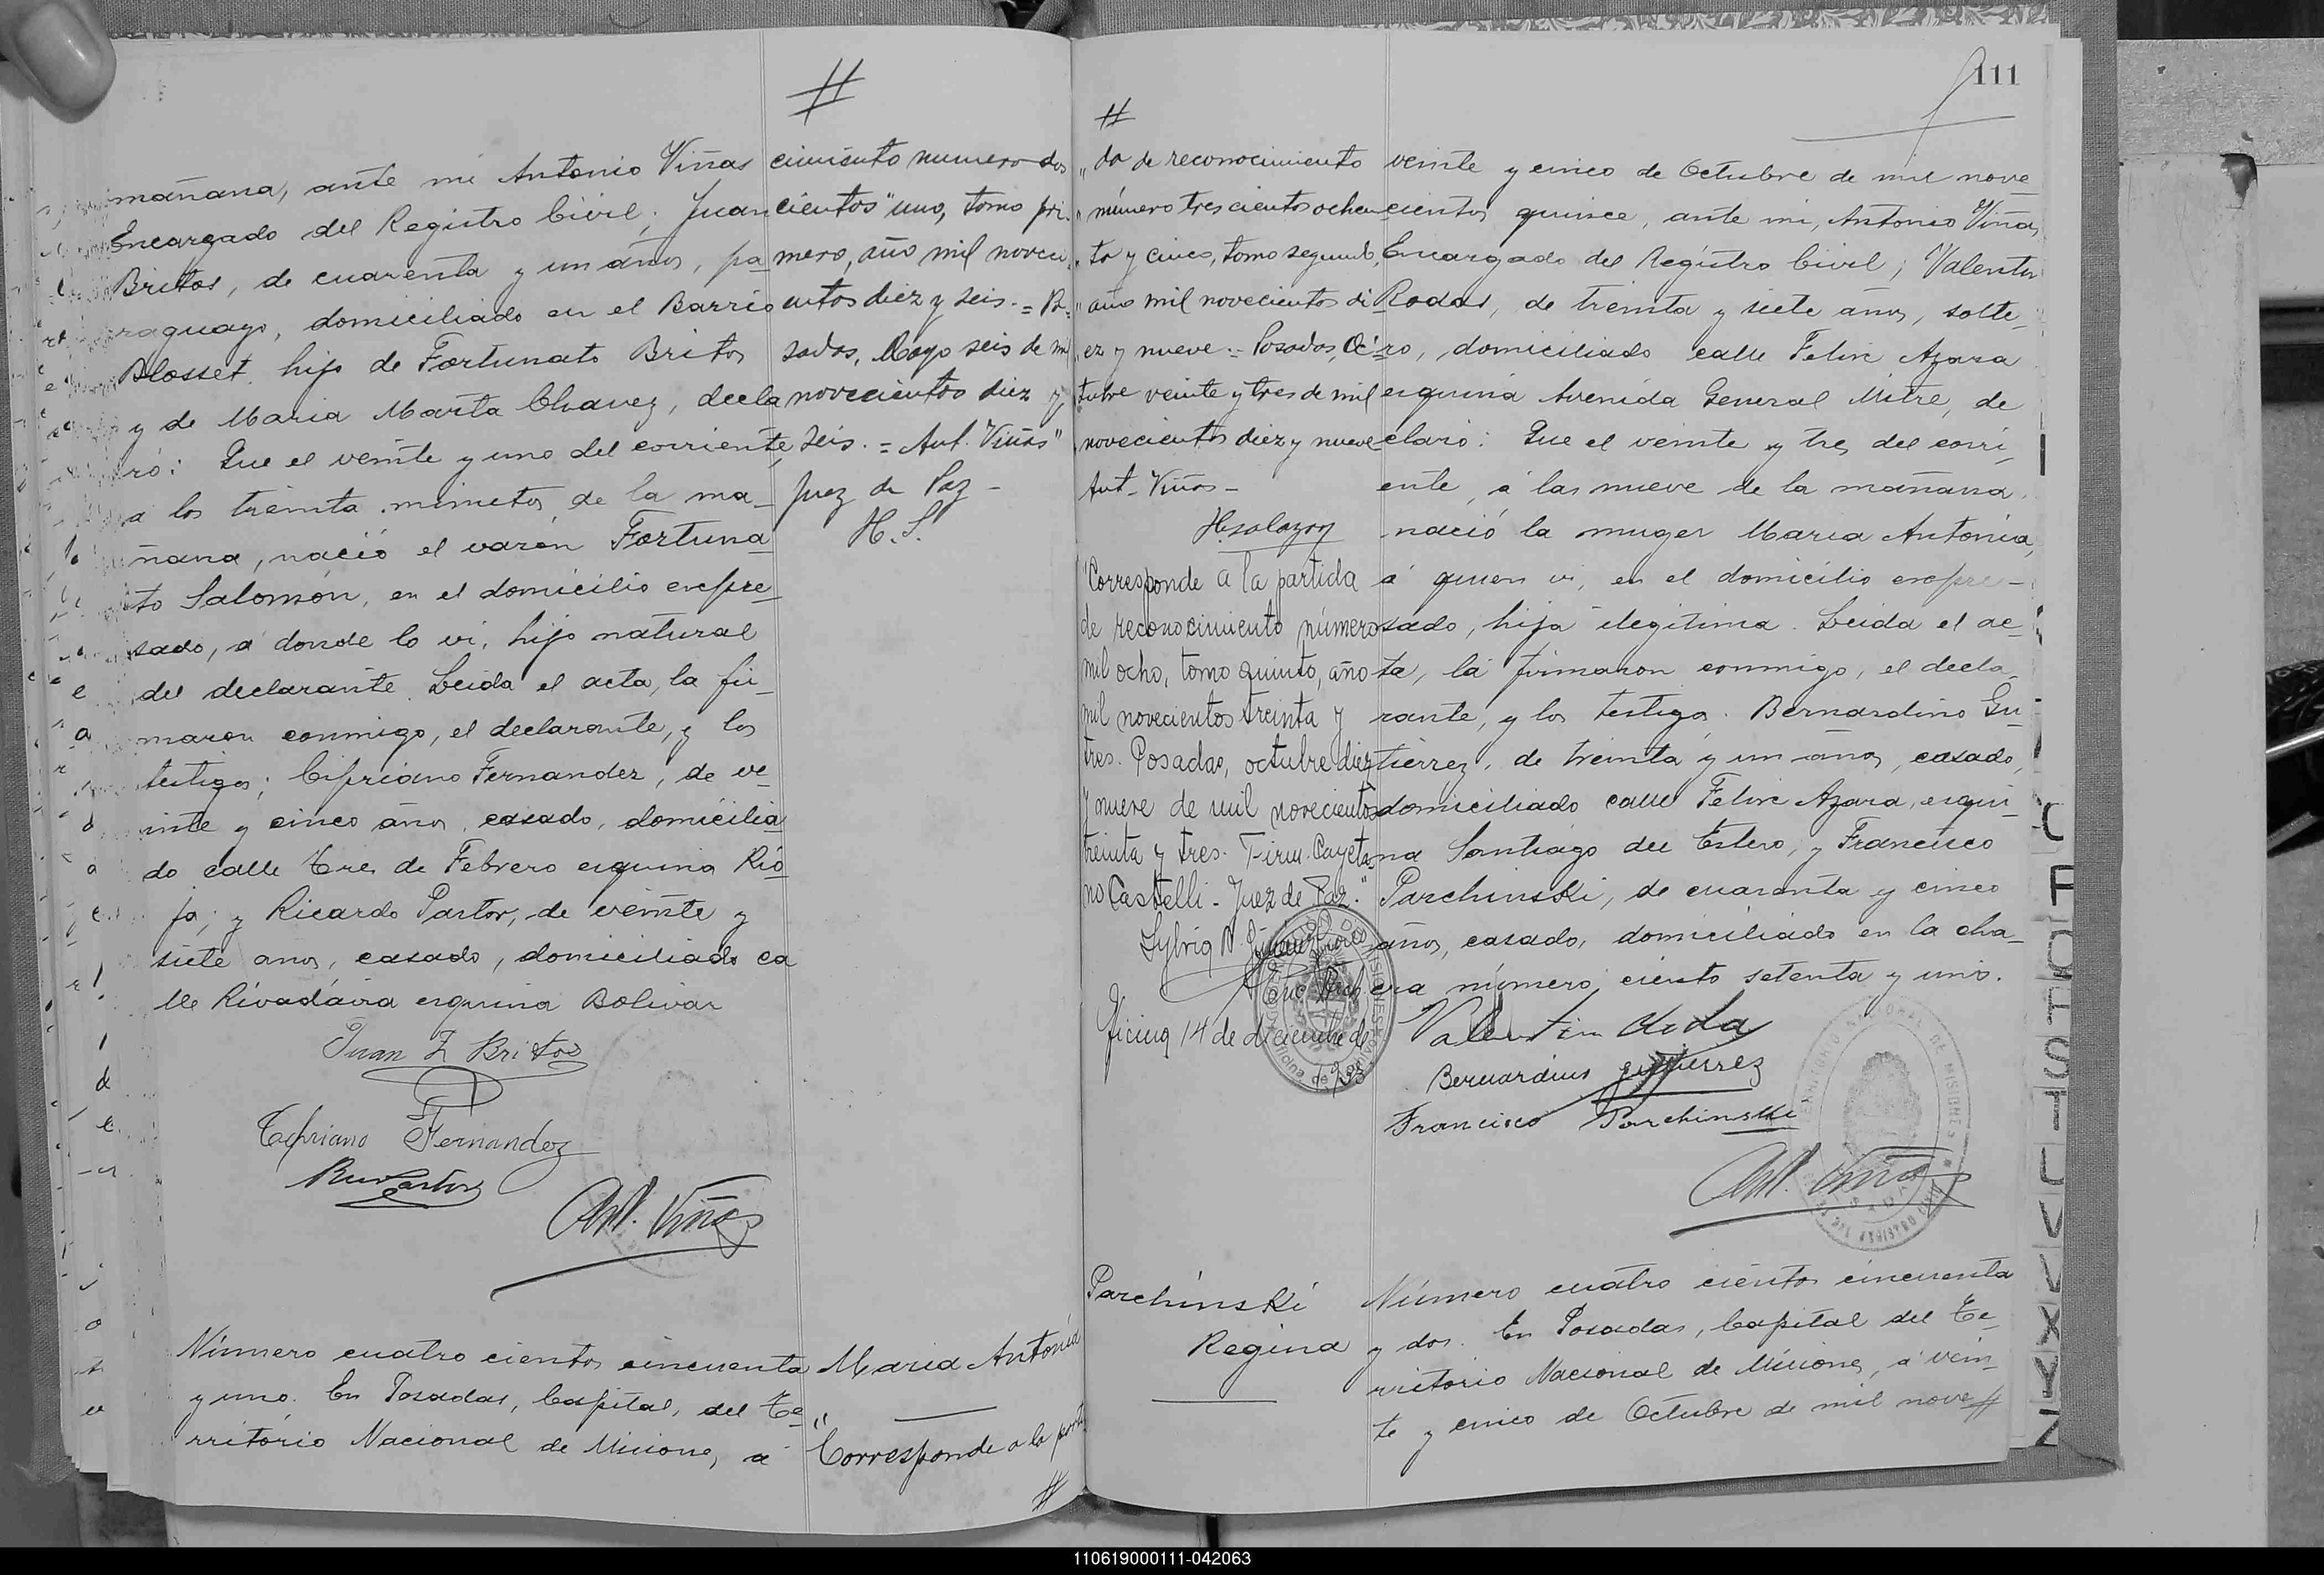 #
mañana, ante mi Antonio Viñas
Encargado del Registro Civil; Juan
Britos, de cuarenta y un años, pa
raguayo, domiciliado en el Barrio
Blosset, hijo de Fortunato Britos
y de Maria Marta Chavez, decla
ró: Que el veinte y uno del corriente,
a los treinta minutos de la ma-
ñana, nació el varón Fortuna
to Salomón, en el domicilio expre-
sado, a donde lo vi, hijo natural
del declarante. Leida el acta, la fir-
maron conmigo, el declarante, y los
testigos; Cipriano Fernandez, de ve-
inte y cinco años, casado, domicilia
do calle Tres de Febrero esquina Rio
ja; y Ricardo Pastor, de veinte y
siete años, casado, domiciliado ca
lle Rivadavia esquina Bolivar
Juan Z Britos
Cipriano Fernandez
Ant. Viñas
cimiento numero dos
cientos uno, tomo pri-
mero, año mil noveci-
entos diez y seis. = Po-
sadas, Mayo seis de mil
novecientos diez y
seis. = Ant. Viñas"
Juez de Paz -
H. S.
Número cuatro cientos cincuenta
y uno. En Posadas, Capital, del Te
rritorio Nacional de Misiones, a
Maria Antonia
"Corresponde a la parti
#
111
#
"da de reconocimiento
"número trescientos ochen
"ta y cinco, tomo segundo,
"año mil novecientos di-
"ez y nueve = Posadas, Oc-
tubre veinte y tres de mil
novecientos diez y nueve
Ant. Viñas -
H. Salazar
"Corresponde a la partida
de reconocimiento número
mil ocho, tomo quinto, año
mil novecientos treinta y
tres. Posadas, octubre diez
y nueve de mil novecientos
treinta y tres. Firm. Cayeta-
no Castelli - Juez de Paz."
Oficina 14 de diciembre de
1933
veinte y cinco de Octubre de mil nove
cientos quince, ante mi, Antonio Viñas,
Encargado del Registro Civil; Valentin
Rodas, de treinta y siete años, solte-
ro, domiciliado calle Felix Azara
esquina Avenida General Mitre, de
claró: Que el veinte y tres del corri-
ente, a las nueve de la mañana,
nació la muger Maria Antonia,
á quien vi, en el domicilio expre-
sado, hija ilegitima. Leida el ac-
ta, la firmaron conmigo, el decla-
rante, y los testigos. Bernardino Gu-
tierrez, de treinta y un años, casado,
domiciliado calle Felix Azara, esqui-
na Santiago del Estero, y Francisco
Parchinski, de cuarenta y cinco
años, casado, domiciliado en la cha-
cra número ciento setenta y uno.
Valentin
Bernardino Gutierrez
Francisco Parchinski
Ant. Viñas
Parchinski
Regina
Número cuatro cientos cincuenta
y dos. En Posadas, Capital del Te-
rritorio Nacional de Misiones, á vein-
te y cinco de Octubre de mil nove #
110619000111-042063